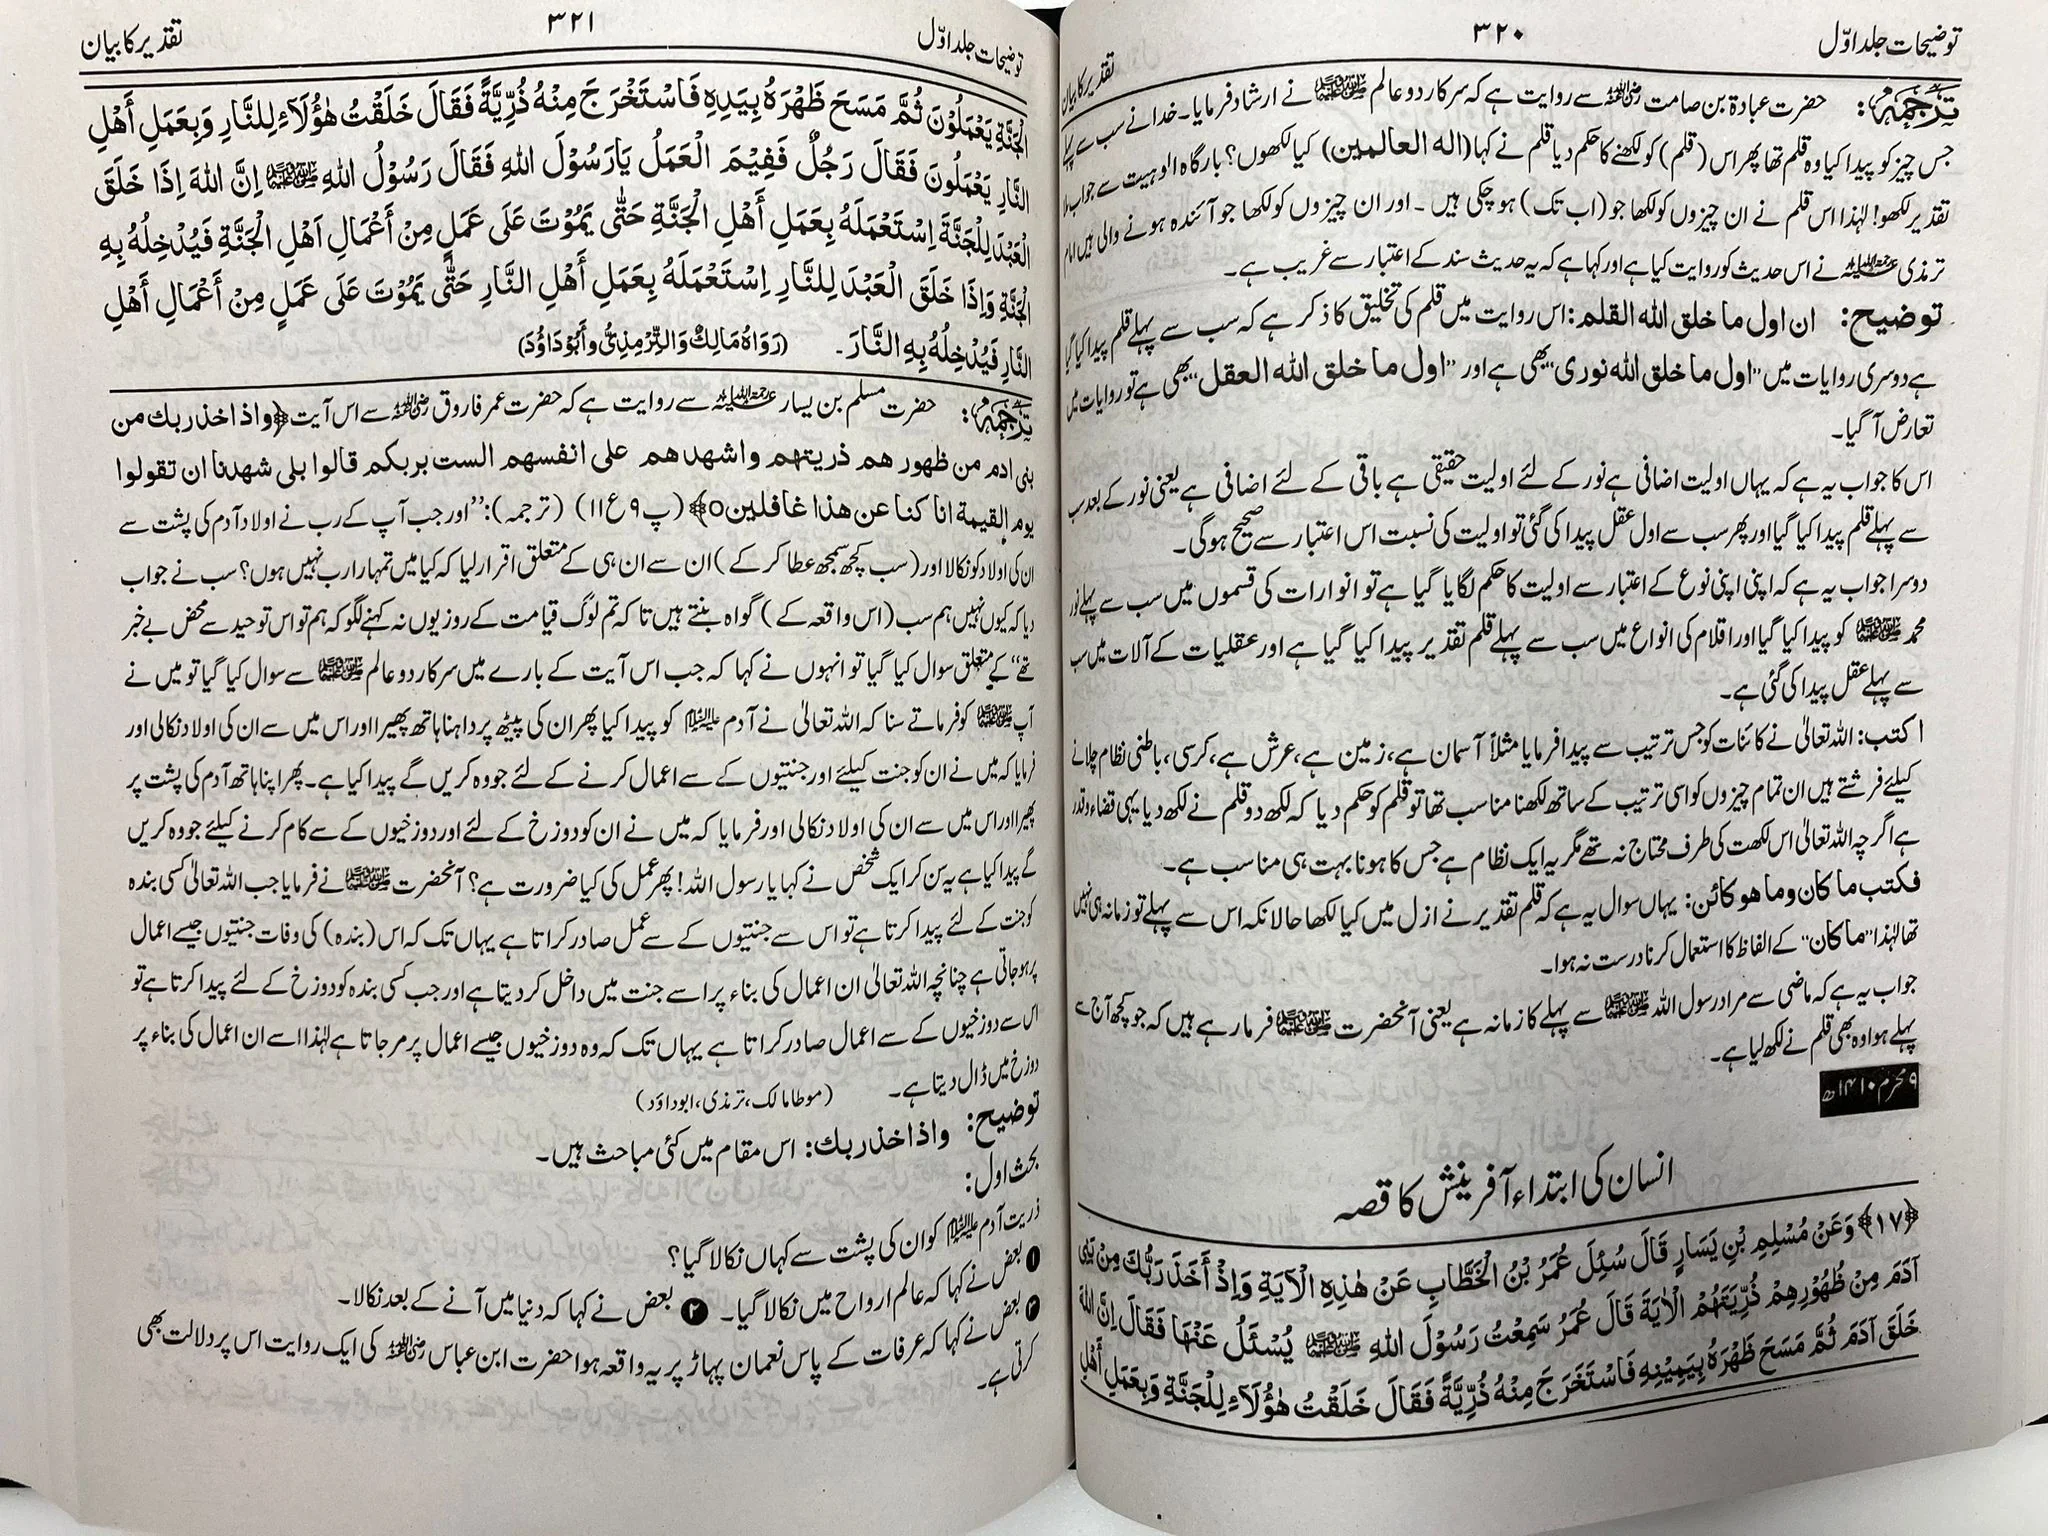 توضیحات جلد اوّل
۳۲۰
تقدیر کا بیان
ترجمہ: حضرت عبادۃ بن صامت رضی اللہ عنہ سے روایت ہے کہ سرکار دو عالم ﷺ نے ارشاد فرمایا۔ خدا نے سب سے پہلے
جس چیز کو پیدا کیا وہ قلم تھا پھر اس (قلم) کو لکھنے کا حکم دیا قلم نے کہا (اله العالمین) کیا لکھوں؟ بارگاہ الوہیت سے جواب
تقدیر لکھو! لہٰذا اس قلم نے ان چیزوں کو لکھا جو (اب تک) ہو چکی ہیں۔ اور ان چیزوں کو لکھا جو آئندہ ہونے والی ہیں امام
ترمذی رحمۃ اللہ علیہ نے اس حدیث کو روایت کیا ہے اور کہا ہے کہ یہ حدیث سند کے اعتبار سے غریب ہے۔
توضیح: ان اول ما خلق الله القلم: اس روایت میں قلم کی تخلیق کا ذکر ہے کہ سب سے پہلے قلم پیدا کیا گیا
ہے دوسری روایات میں "اول ما خلق الله نوری" بھی ہے اور "اول ما خلق الله العقل" بھی ہے تو روایات میں
تعارض آ گیا۔
اس کا جواب یہ ہے کہ یہاں اولیت اضافی ہے نور کے لئے اولیت حقیقی ہے باقی کے لئے اضافی ہے یعنی نور کے بعد سب
سے پہلے قلم پیدا کیا گیا اور پھر سب سے اول عقل پیدا کی گئی تو اولیت کی نسبت اس اعتبار سے صحیح ہوگی۔
دوسرا جواب یہ ہے کہ اپنی اپنی نوع کے اعتبار سے اولیت کا حکم لگایا گیا ہے تو انوارات کی قسموں میں سب سے پہلے نور
محمد ﷺ کو پیدا کیا گیا اور اقلام کی انواع میں سب سے پہلے قلم تقدیر پیدا کیا گیا ہے اور عقلیات کے آلات میں سب
سے پہلے عقل پیدا کی گئی ہے۔
اکتب: اللہ تعالیٰ نے کائنات کو جس ترتیب سے پیدا فرمایا مثلاً آسمان ہے، زمین ہے، عرش ہے، کرسی، باطنی نظام چلانے
کیلئے فرشتے ہیں ان تمام چیزوں کو اسی ترتیب کے ساتھ لکھنا مناسب تھا تو قلم کو حکم دیا کہ لکھ دو قلم نے لکھ دیا یہی قضاء و قدر
ہے اگرچہ اللہ تعالیٰ اس لکھت کی طرف محتاج نہ تھے مگر یہ ایک نظام ہے جس کا ہونا بہت ہی مناسب ہے۔
فکتب ما کان وما هو کائن: یہاں سوال یہ ہے کہ قلم تقدیر نے ازل میں کیا لکھا حالانکہ اس سے پہلے تو زمانہ ہی نہیں
تھا لہٰذا "ماکان" کے الفاظ کا استعمال کرنا درست نہ ہوا۔
جواب یہ ہے کہ ماضی سے مراد رسول اللہ ﷺ سے پہلے کا زمانہ ہے یعنی آنحضرت ﷺ فرما رہے ہیں کہ جو کچھ آج سے
پہلے ہوا وہ بھی قلم نے لکھ لیا ہے۔
۹ محرم ۱۴۱۰ھ
انسان کی ابتداء آفرینش کا قصہ
﴿۱۷﴾ وَعَنْ مُسْلِمِ بْنِ يَسَارٍ قَالَ سُئِلَ عُمَرُ بْنُ الْخَطَّابِ عَنْ هٰذِهِ الْآيَةِ وَإِذْ أَخَذَ رَبُّكَ مِنْ بَنِي
آدَمَ مِنْ ظُهُوْرِهِمْ ذُرِّيَّتَهُمْ الْاٰيَةَ قَالَ عُمَرُ سَمِعْتُ رَسُوْلَ اللهِ ﷺ يُسْئَلُ عَنْهَا فَقَالَ اِنَّ اللهَ
خَلَقَ آدَمَ ثُمَّ مَسَحَ ظَهْرَهٗ بِيَمِيْنِهٖ فَاسْتَخْرَجَ مِنْهُ ذُرِّيَّةً فَقَالَ خَلَقْتُ هٰؤُلَاءِ لِلْجَنَّةِ وَبِعَمَلِ أَهْلِ
توضیحات جلد اوّل
۳۲۱
تقدیر کا بیان
الْجَنَّةِ يَعْمَلُوْنَ ثُمَّ مَسَحَ ظَهْرَهٗ بِيَدِهٖ فَاسْتَخْرَجَ مِنْهُ ذُرِّيَّةً فَقَالَ خَلَقْتُ هٰؤُلَاءِ لِلنَّارِ وَبِعَمَلِ أَهْلِ
النَّارِ يَعْمَلُوْنَ فَقَالَ رَجُلٌ فَفِيْمَ الْعَمَلُ يَارَسُوْلَ اللهِ فَقَالَ رَسُوْلُ اللهِ ﷺ اِنَّ اللهَ اِذَا خَلَقَ
الْعَبْدَ لِلْجَنَّةِ اِسْتَعْمَلَهٗ بِعَمَلِ أَهْلِ الْجَنَّةِ حَتّٰى يَمُوْتَ عَلَى عَمَلٍ مِنْ أَعْمَالِ اَهْلِ الْجَنَّةِ فَيُدْخِلُهٗ بِهِ
الْجَنَّةَ وَاِذَا خَلَقَ الْعَبْدَ لِلنَّارِ اِسْتَعْمَلَهٗ بِعَمَلِ أَهْلِ النَّارِ حَتّٰى يَمُوْتَ عَلَى عَمَلٍ مِنْ أَعْمَالِ أَهْلِ
النَّارِ فَيُدْخِلُهٗ بِهِ النَّارَ۔ (رَوَاهُ مَالِكٌ وَالتِّرْمِذِيُّ وَأَبُوْدَاوُدَ)
ترجمہ: حضرت مسلم بن یسار رحمۃ اللہ علیہ سے روایت ہے کہ حضرت عمر فاروق رضی اللہ عنہ سے اس آیت ﴿واذ اخذ ربك من
بنی ادم من ظهور هم ذریتهم واشهد هم علی انفسهم الست بربکم قالوا بلی شهدنا ان تقولوا
یوم القیمة انا کنا عن هذا غافلین٥﴾ (پ ۹ ع ۱۱) (ترجمہ): "اور جب آپ کے رب نے اولاد آدم کی پشت سے
ان کی اولاد کو نکالا اور (سب کچھ سمجھ عطا کر کے) ان سے ان ہی کے متعلق اقرار لیا کہ کیا میں تمہارا رب نہیں ہوں؟ سب نے جواب
دیا کہ کیوں نہیں ہم سب (اس واقعہ کے) گواہ بنتے ہیں تا کہ تم لوگ قیامت کے روز یوں نہ کہنے لگو کہ ہم تو اس توحید سے محض بے خبر
تھے" کے متعلق سوال کیا گیا تو انہوں نے کہا کہ جب اس آیت کے بارے میں سرکار دو عالم ﷺ سے سوال کیا گیا تو میں نے
آپ ﷺ کو فرماتے سنا کہ اللہ تعالیٰ نے آدم علیہ السلام کو پیدا کیا پھر ان کی پیٹھ پر داہنا ہاتھ پھیرا اور اس میں سے ان کی اولاد نکالی اور
فرمایا کہ میں نے ان کو جنت کیلئے اور جنتیوں کے سے اعمال کرنے کے لئے جو وہ کریں گے پیدا کیا ہے۔ پھر اپنا ہاتھ آدم کی پشت پر
پھیرا اور اس میں سے ان کی اولاد نکالی اور فرمایا کہ میں نے ان کو دوزخ کے لئے اور دوزخیوں کے سے کام کرنے کیلئے جو وہ کریں
گے پیدا کیا ہے یہ سن کر ایک شخص نے کہا یا رسول اللہ! پھر عمل کی کیا ضرورت ہے؟ آنحضرت ﷺ نے فرمایا جب اللہ تعالیٰ کسی بندہ
کو جنت کے لئے پیدا کرتا ہے تو اس سے جنتیوں کے سے عمل صادر کراتا ہے یہاں تک کہ اس (بندہ) کی وفات جنتیوں جیسے اعمال
پر ہو جاتی ہے چنانچہ اللہ تعالیٰ ان اعمال کی بناء پر اسے جنت میں داخل کر دیتا ہے اور جب کسی بندہ کو دوزخ کے لئے پیدا کرتا ہے تو
اس سے دوزخیوں کے سے اعمال صادر کراتا ہے یہاں تک کہ وہ دوزخیوں جیسے اعمال پر مر جاتا ہے لہٰذا اسے ان اعمال کی بناء پر
دوزخ میں ڈال دیتا ہے۔ (موطا مالک، ترمذی، ابوداؤد)
توضیح: واذ اخذ ربك: اس مقام میں کئی مباحث ہیں۔
بحث اول:
ذریت آدم علیہ السلام کو ان کی پشت سے کہاں نکالا گیا؟
❶ بعض نے کہا کہ عالم ارواح میں نکالا گیا۔ ❷ بعض نے کہا کہ دنیا میں آنے کے بعد نکالا۔
❸ بعض نے کہا کہ عرفات کے پاس نعمان پہاڑ پر یہ واقعہ ہوا حضرت ابن عباس رضی اللہ عنہ کی ایک روایت اس پر دلالت بھی
کرتی ہے۔